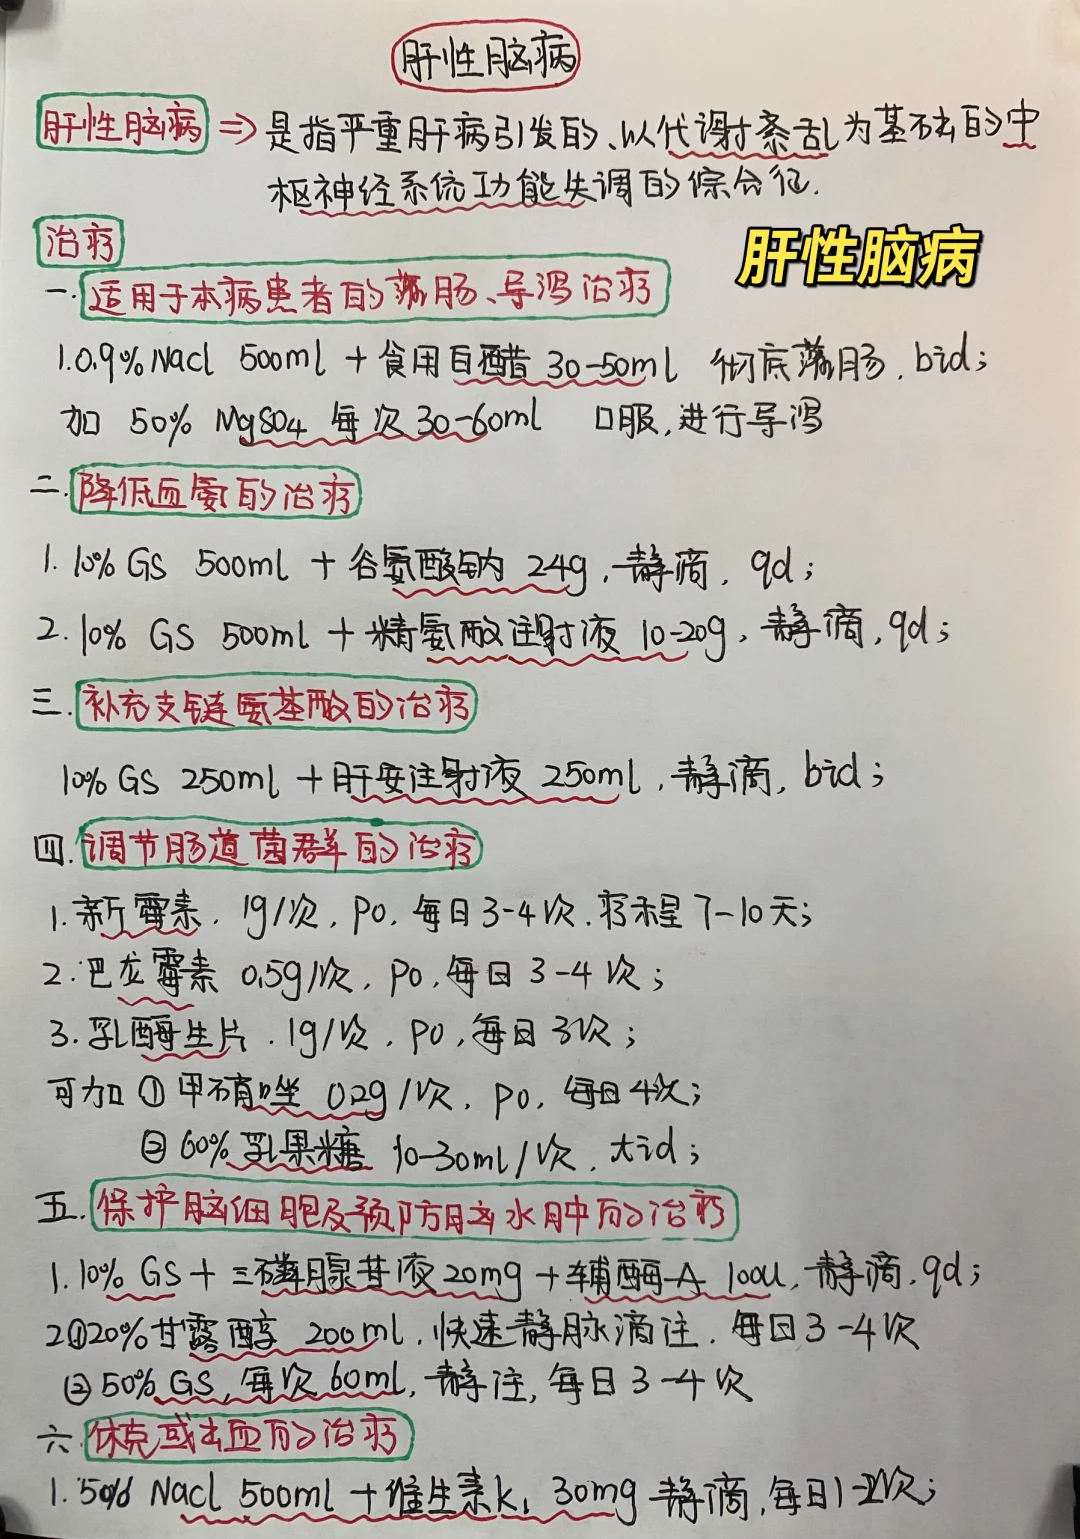 肝性脑病
肝性脑病 ⇒ 是指严重肝病引发的、以代谢紊乱为基础的中
枢神经系统功能失调的综合征.
治疗
肝性脑病
一. 适用于本病患者的灌肠、导泻治疗
1.0.9% Nacl 500ml + 食用白醋 30-50ml 彻底灌肠, bid;
加 50% MgSO4 每次 30-60ml 口服,进行导泻
二. 降低血氨的治疗
1. 10% GS 500ml + 谷氨酸钠 24g, 静滴, qd;
2. 10% GS 500ml + 精氨酸注射液 10-20g, 静滴, qd;
三. 补充支链氨基酸的治疗
10% GS 250ml + 肝安注射液 250ml, 静滴, bid;
四. 调节肠道菌群的治疗
1. 新霉素, 1g/次, po, 每日3-4次, 疗程7-10天;
2. 巴龙霉素 0.5g/次, po, 每日3-4次;
3. 乳酶生片, 1g/次, po, 每日3次;
可加 ① 甲硝唑 0.2g/次, po, 每日4次;
② 60% 乳果糖 10-30ml/次, tid;
五. 保护脑细胞及预防脑水肿的治疗
1. 10% GS + 三磷腺苷液 20mg + 辅酶A 100u, 静滴, qd;
2①20%甘露醇 200ml, 快速静脉滴注, 每日3-4次
② 50% GS, 每次 60ml, 静注, 每日3-4次
六. 休克或出血的治疗
1. 50% Nacl 500ml + 维生素k1 30mg 静滴, 每日1-2次;